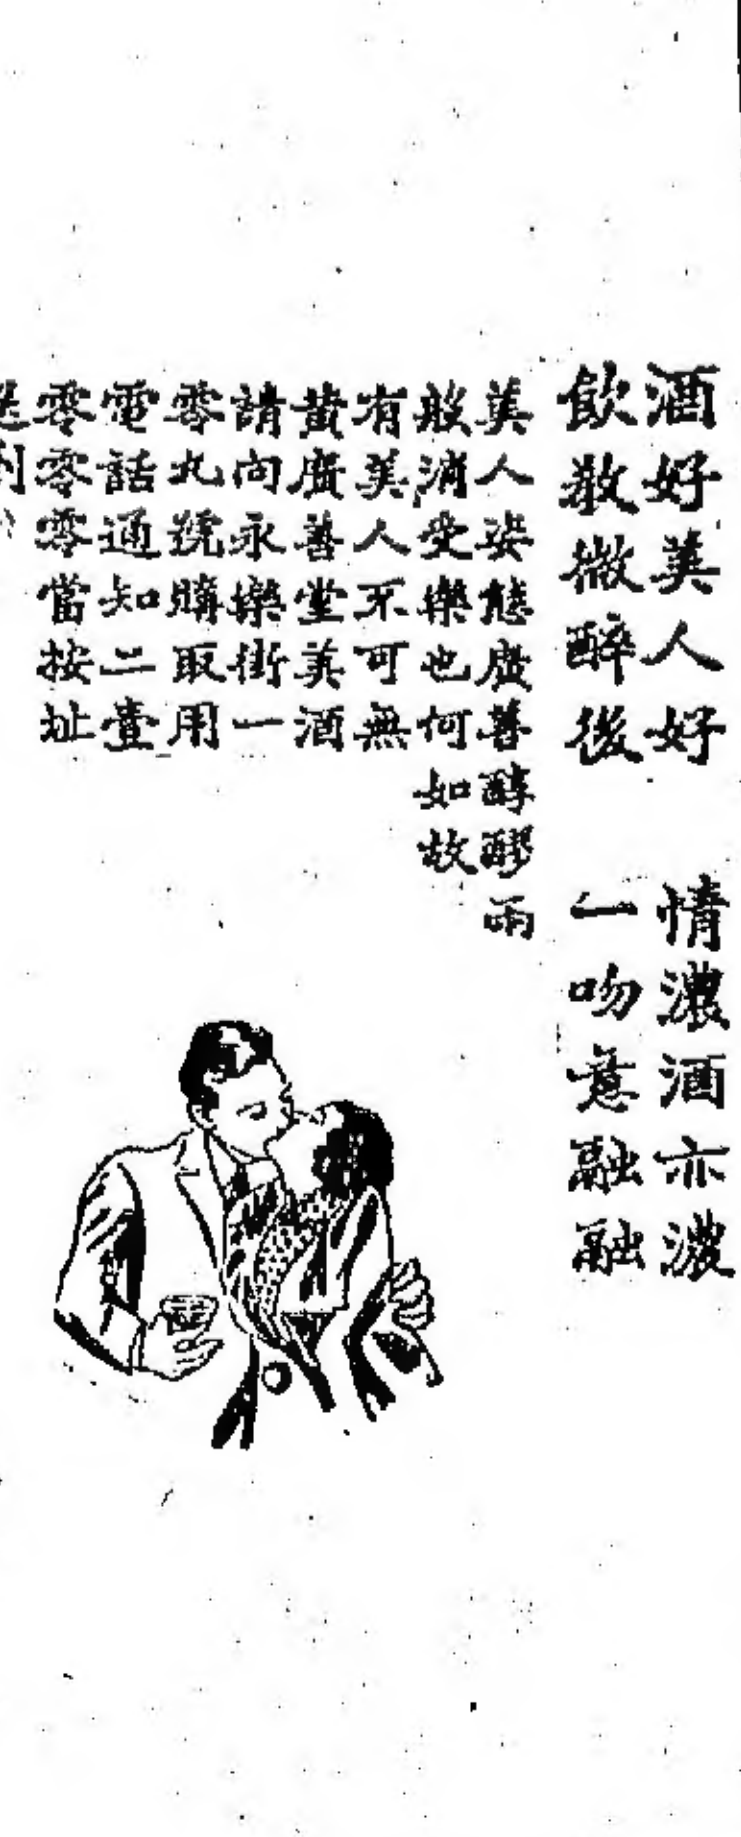 酒好美人好 情濃酒亦濃
飲散微醉後 一吻意融融
美人姿態廣善醇醪兩
般消受樂也何如故
有美人不可無
黃廣善堂美酒
請向永樂街一
零九號購取用
電話通知二壹
零零零當按址
送到